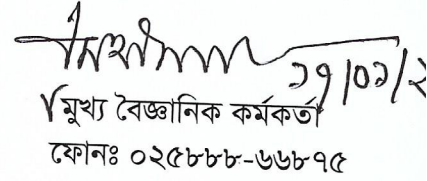 ২৭/০২/২
মুখ্য বৈজ্ঞানিক কর্মকর্তা
ফোনঃ ০২৫৮৮৮-৬৬৮৭৫